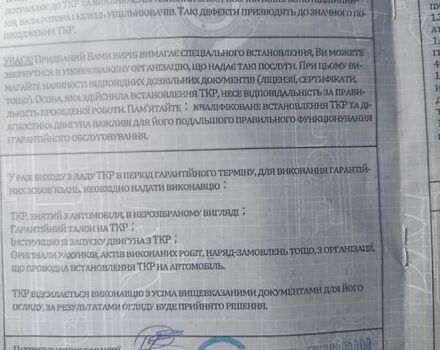 ВАЛА РОТОРА І КІЛЕЦЬ-УЩІЛЬНЮВАЧІВ. ТАКІ ДЕФЕКТИ ПРИЗВОДЯТЬ ДО ЗНАЧНОГО ПО-
ШКОДЖЕННЯ ТКР.
УВАГА! ПРИДБАНИЙ ВАМИ ВИРІБ ВИМАГАЄ СПЕЦІАЛЬНОГО ВСТАНОВЛЕННЯ, ВИ МОЖЕТЕ
ЗВЕРНУТИСЯ В УПОВНОВАЖЕНУ ОРГАНІЗАЦІЮ, ЩО НАДАЄ ТАКІ ПОСЛУГИ. ПРИ ЦЬОМУ ВИ-
МАГАЙТЕ НАЯВНОСТІ ВІДПОВІДНИХ ДОЗВІЛЬНИХ ДОКУМЕНТІВ (ЛІЦЕНЗІЇ, СЕРТИФІКАТИ,
ТОЩО). ОСОБА, ЯКА ЗДІЙСНИЛА ВСТАНОВЛЕННЯ ТКР, НЕСЕ ВІДПОВІДАЛЬНІСТЬ ЗА ПРАВИ-
ЛЬНІСТЬ ПРОВЕДЕНОЇ РОБОТИ. ПАМ'ЯТАЙТЕ : КВАЛІФІКОВАНЕ ВСТАНОВЛЕННЯ ТКР ТА ДІ-
АГНОСТИКА ДВИГУНА ВАЖЛИВІ ДЛЯ ЙОГО ПОДАЛЬШОГО ПРАВИЛЬНОГО ФУНКЦІОНУВАННЯ
І ГАРАНТІЙНОГО ОБСЛУГОВУВАННЯ.
У РАЗІ ВИХОДУ З ЛАДУ ТКР В ПЕРІОД ГАРАНТІЙНОГО ТЕРМІНУ, ДЛЯ ВИКОНАННЯ ГАРАНТІЙ-
НИХ ЗОБОВ'ЯЗАНЬ, НЕОБХІДНО НАДАТИ ВИКОНАВЦЮ :
ТКР, ЗНЯТИЙ З АВТОМОБІЛЯ, В НЕРОЗІБРАНОМУ ВИГЛЯДІ :
ГАРАНТІЙНИЙ ТАЛОН НА ТКР :
ІНСТРУКЦІЮ ІЗ ЗАПУСКУ ДВИГУНА З ТКР :
ОРИГІНАЛИ РАХУНКІВ, АКТІВ ВИКОНАНИХ РОБІТ, НАРЯД-ЗАМОВЛЕНЬ ТОЩО, З ОРГАНІЗАЦІЇ,
ЩО ПРОВОДИЛА ВСТАНОВЛЕННЯ ТКР НА АВТОМОБІЛЬ.
ТКР ВІДСИЛАЄТЬСЯ ВИКОНАВЦЮ З УСІМА ВИЩЕВКАЗАНИМИ ДОКУМЕНТАМИ ДЛЯ ЙОГО
ОГЛЯДУ, ЗА РЕЗУЛЬТАТАМИ ОГЛЯДУ БУДЕ ПРИЙНЯТО РІШЕННЯ.